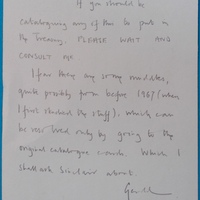 If you should be
cataloguing any of this to put in
the Treasury, PLEASE WAIT AND
CONSULT ME.
I fear there are some muddles,
quite possibly from before 1987 (when
I first checked the stuff), which can
be resolved only by going to the
original catalogue cards. Which I
shall ask Sinclair about.